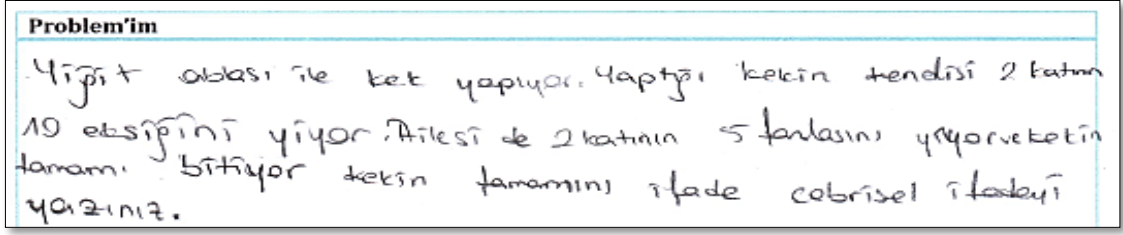 Problem'im
Yiğit ablası ile kek yapıyor. Yaptığı kekin kendisi 2 katının
10 eksiğini yiyor. Ailesi de 2 katının 5 fazlasını yiyor ve kekin
tamamı bitiyor kekin tamamını ifade cebrisel ifadeyi
yazınız.